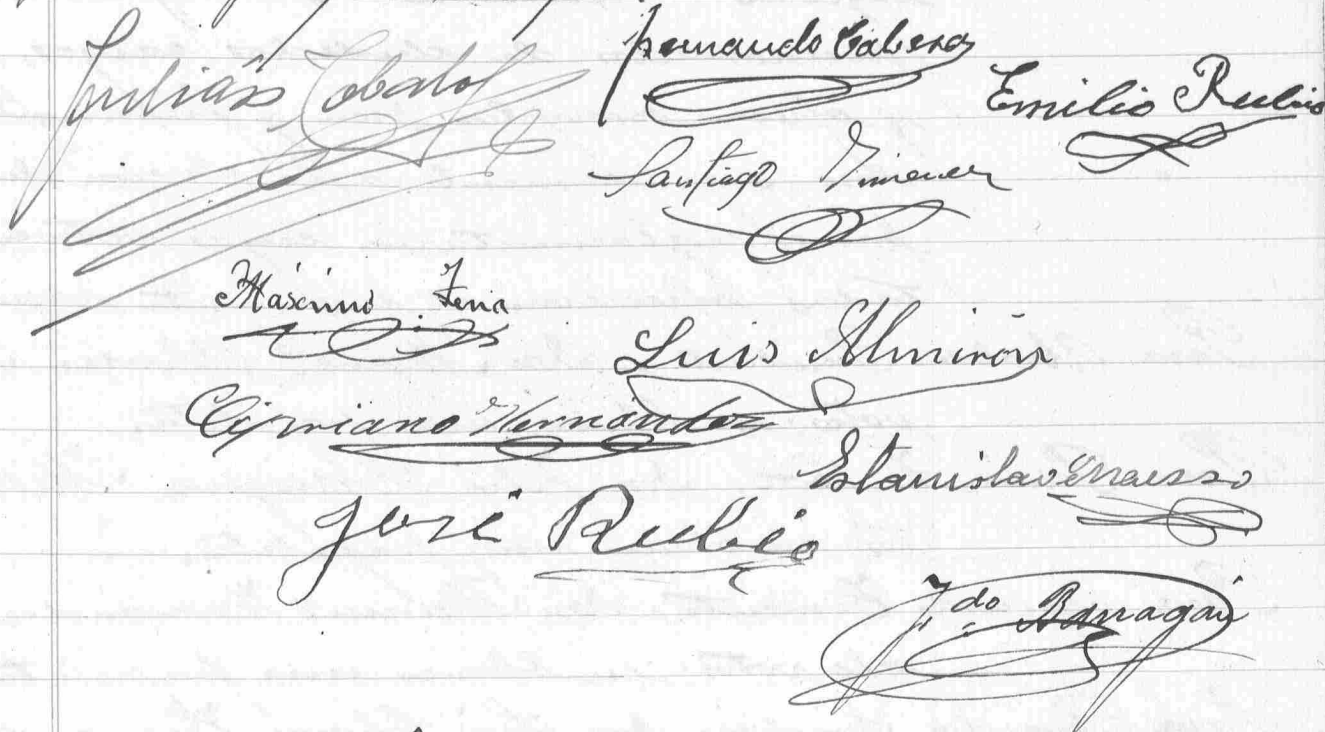 Julián
Fernando Cabezas
Emilio Rubio
Santiago Jimenez
Máximo
Luis Almirón
Cipriano Hernández
Estanislao
José Rubio
F.do Barragán